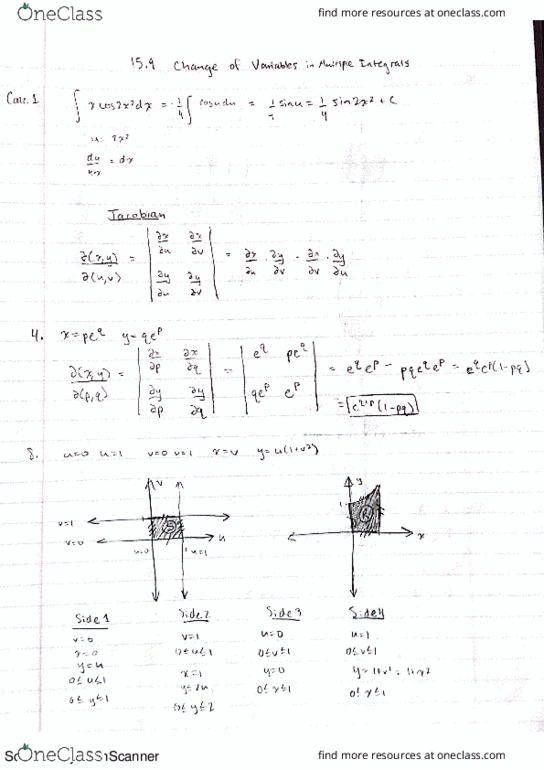 OneClass
find more resources at oneclass.com
15.9 Change of Variables in Multiple Integrals
Calc. 1 ∫ x cos 2x² dx = 1/4 ∫ cos u du = 1/4 sin u = 1/4 sin 2x² + C
u = 2x²
du/4x = dx
Jacobian
∂(x,y)/∂(u,v) = | ∂x/∂u ∂x/∂v ; ∂y/∂u ∂y/∂v | = ∂x/∂u · ∂y/∂v - ∂x/∂v · ∂y/∂u
4. x=pe^q y=qe^p
∂(x,y)/∂(p,q) = | ∂x/∂p ∂x/∂q ; ∂y/∂p ∂y/∂q | = | e^q pe^q ; qe^p e^p | = e^q e^p - pqe^q e^p = e^q e^p(1-pq)
= e^(q+p)(1-pq)
8. u=0 u=1 v=0 v=1 x=v y=u(1+v²)
v
y
1
v=1
S
R
v=0
u
x
u=0
1
u=1
Side 1 Side 2 Side 3 Side 4
v=0 v=1 u=0 u=1
x=0 0≤u≤1 0≤v≤1 0≤v≤1
y=u x=1 y=0 y=1+v²=1+x²
0≤u≤1 y=2u 0≤x≤1 0≤x≤1
0≤y≤1 0≤y≤2
OneClass
Scanner
find more resources at oneclass.com